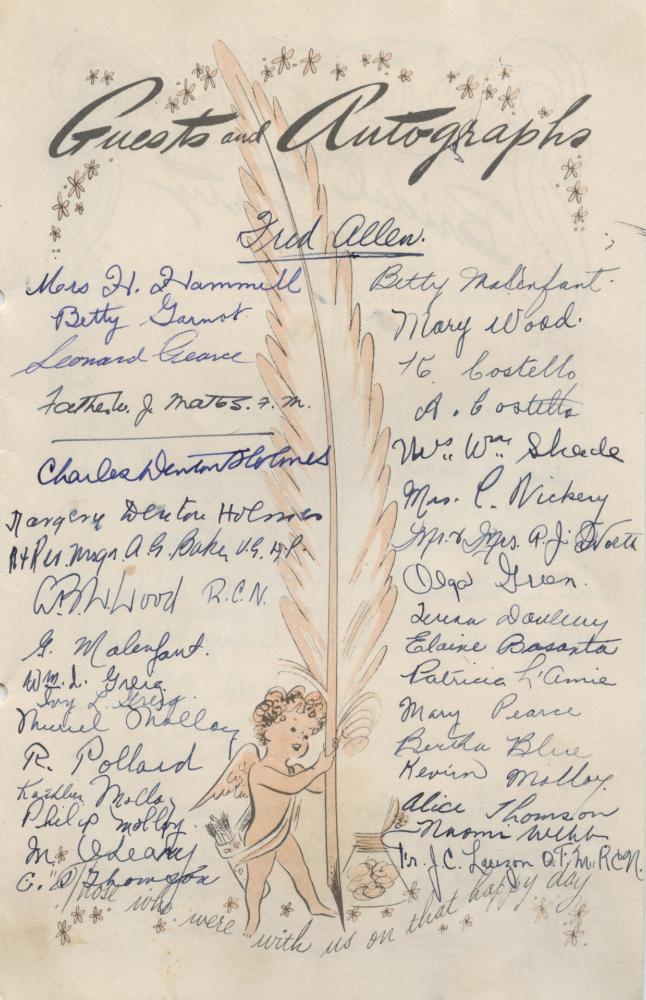 Guests and Autographs
Fred Allen.
Mrs H. Hammill
Betty Garnot
Leonard Gearce
Father J.
Charles Denton Holmes
Margery Denton Holmes
Rt Rev. Msgr. A. G. Baker V.G. D.P.
Wood R.C.N.
G. Malenfant.
Wm. L. Greig
Ivy L. Greig
Muriel Molloy
R. Pollard
Kathleen Molloy
Philip Molloy
M. O'Leary
C. D. Thomson
Betty Malenfant.
Mary Wood.
K Costello
A. Costello
Mrs. Wm. Skade
Mrs. C. Vickery
Mr. & Mrs. A. J. North
Olga Green.
Elaine Basanta
Patricia L'Amie
Mary Pearce
Bertha Blue
Kevin Molloy.
Alice Thomson
Naomi Webb
Fr. J.C. Lauzon O.F.M. R.C.N.
Those who were with us on that happy day